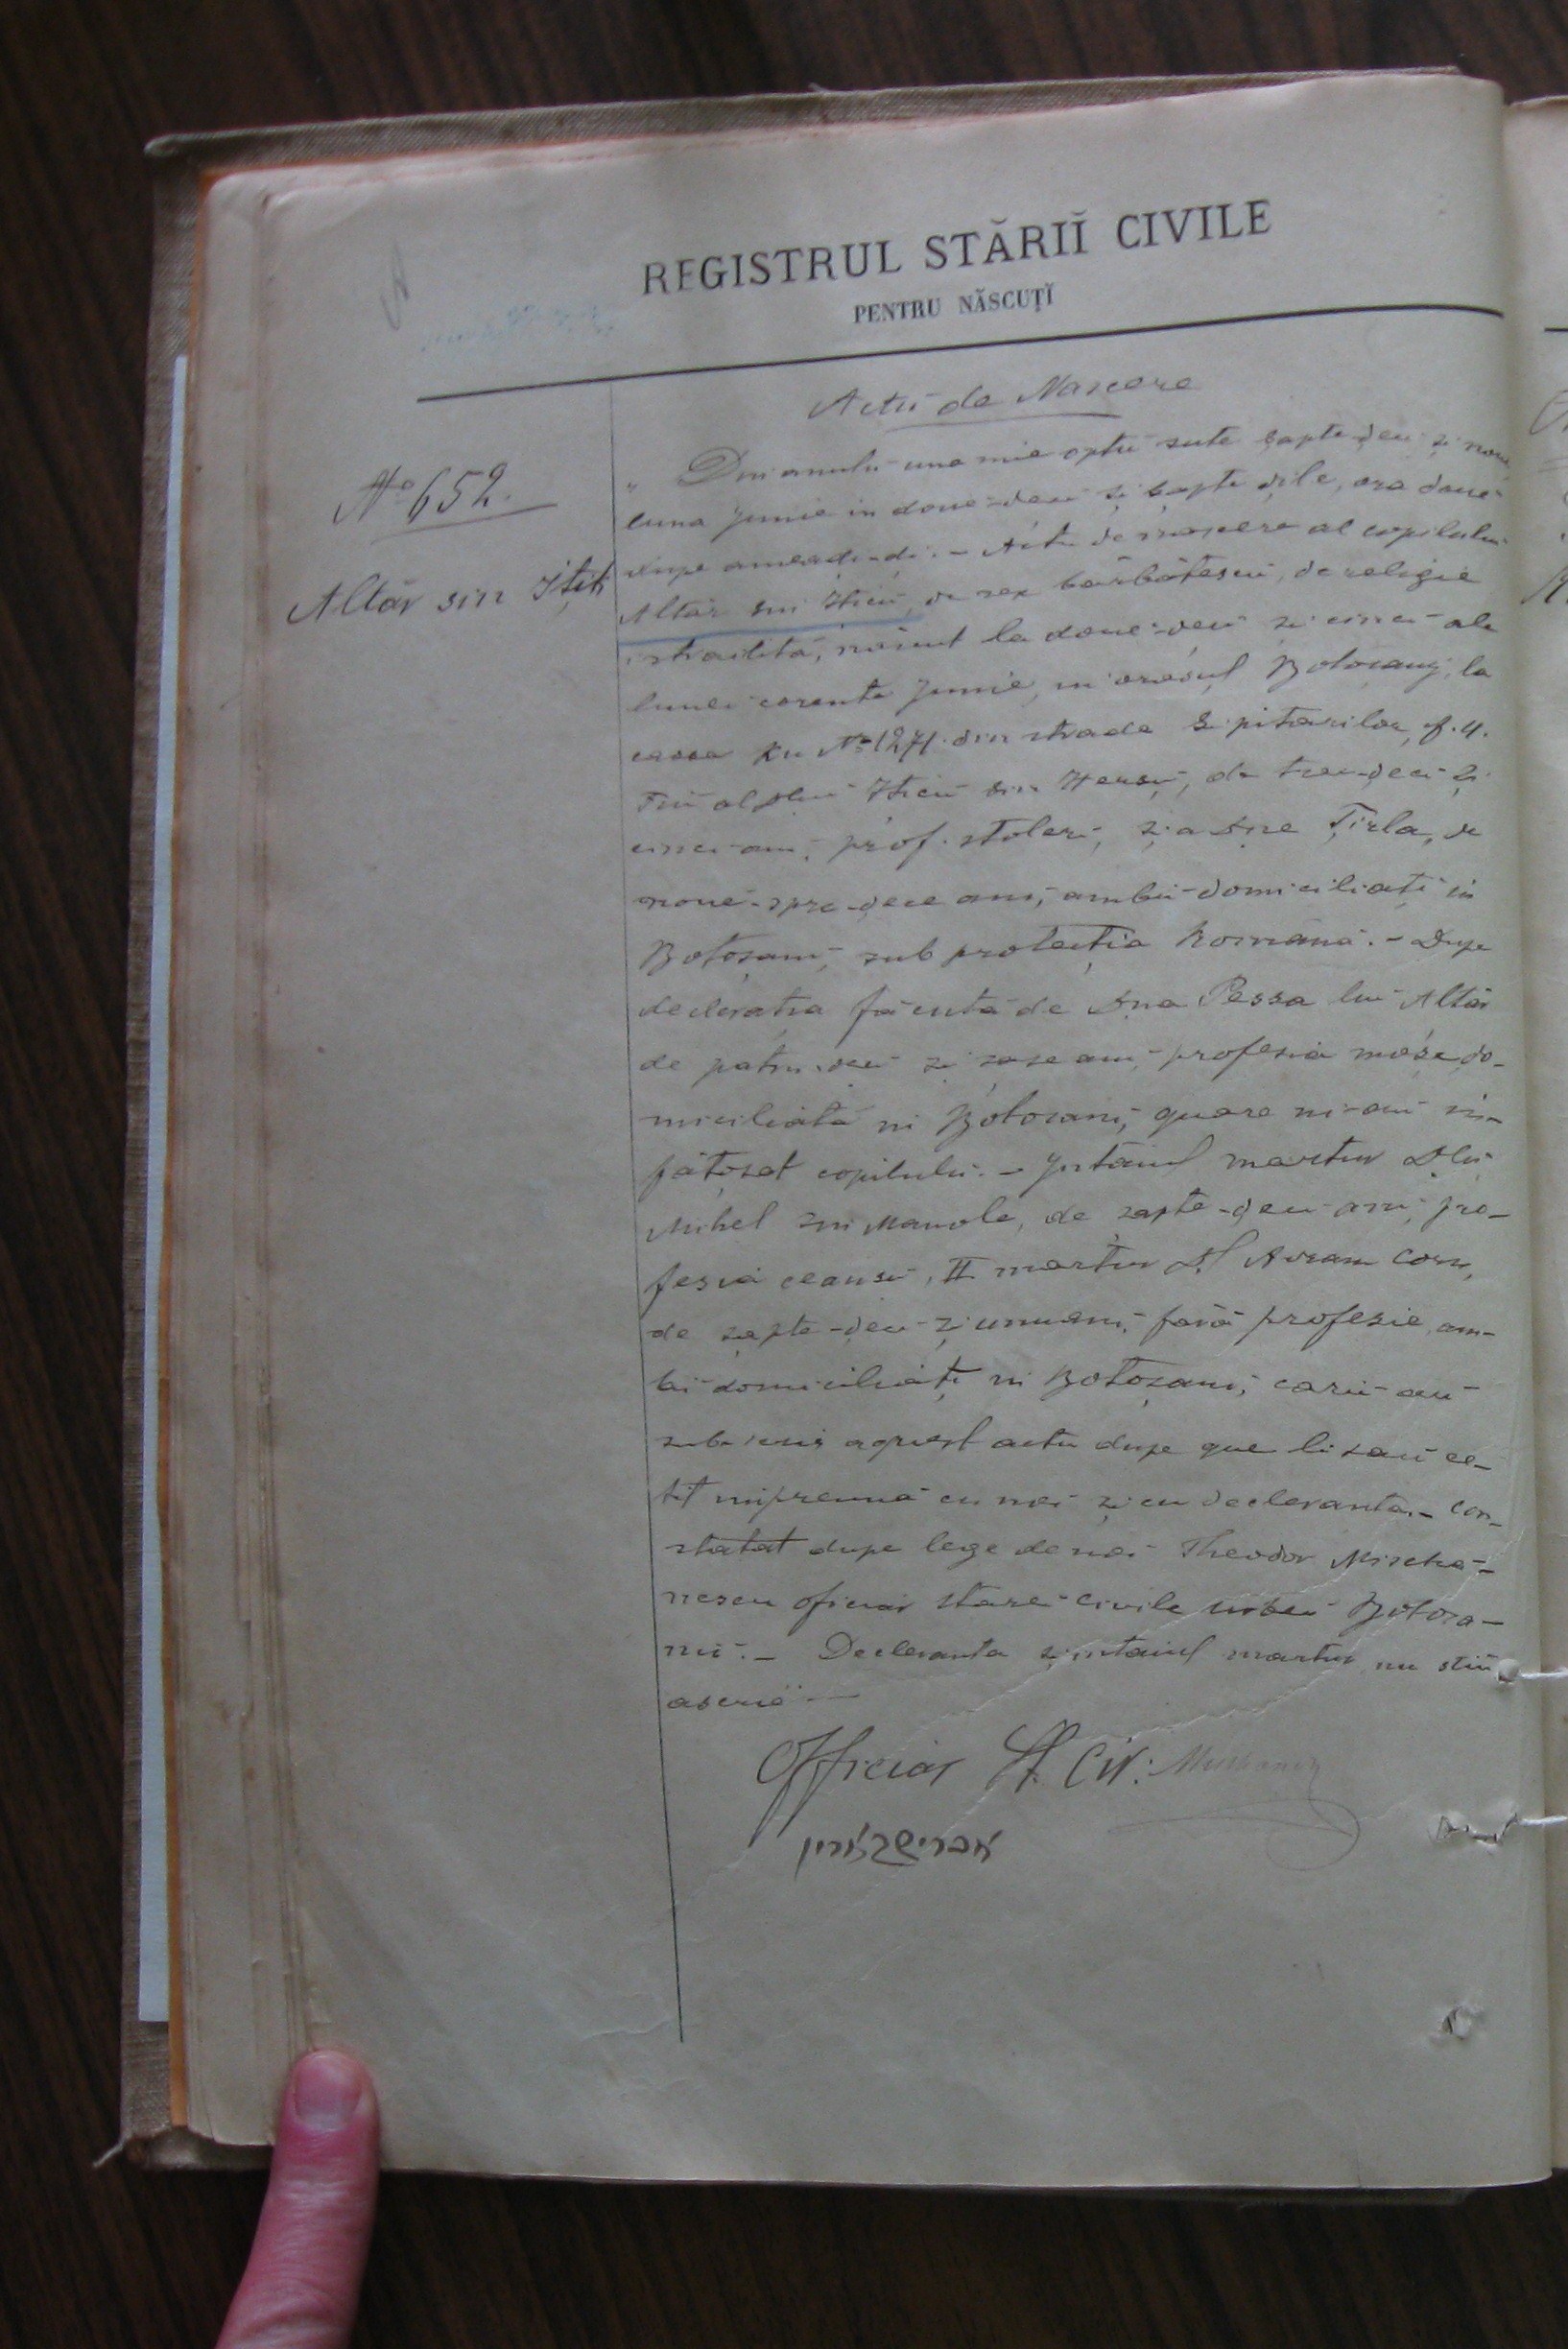 REGISTRUL STĂRIĬ CIVILE
PENTRU NĂSCUȚĬ
Actŭ de Nascere
Nº 652.
Altăr sin Ițik
Din anulu una mie optŭ sute șapte-deci și noue
luna Junie in doue-deci și șapte dile, ora doue
dupe ameadi-di. – Actu de nascere al copilului
Altăr sin Iticŭ, de sex bărbătescŭ, de religie
israilită, născut la doue-deci și cinci ale
lunei corente Junie, in orașul Botoșany, la
cassa ku Nº 1271 din strada
Fiŭ al Dlui Iticŭ sin Hersŭ, de trei-deci și
cinci ani, prof. stolerŭ, și a Dnei Țirla, de
noue-spre-dece ani, ambii domiciliați in
Botoșani, sub protecția Română. – Dupe
declerația făcută de Dna Pessa lui Altăr
de patru-deci și șase ani, profesia moșe, do-
miciliată in Botosani, quare ni-au in-
fățoșat copilulu. – Intăiul martur Dlu
Mihel sin Manole, de șapte-deci ani, pro-
fesia ceausŭ, II martur Dl Avram Corn,
de șapte-deci și unu ani, fără profesie, am-
bi domiciliați in Botoșani, carii au
subscris aquest actu dupe que li sau ce-
tit impreună cu noi și cu declaranta. – Con-
statat dupe lege de noi Theodor Mischa-
nescu oficiar starei civile urbei Botosa-
ni. – Decleranta și intaiul martur nu știu
a serie –
Officiar St. Civ: